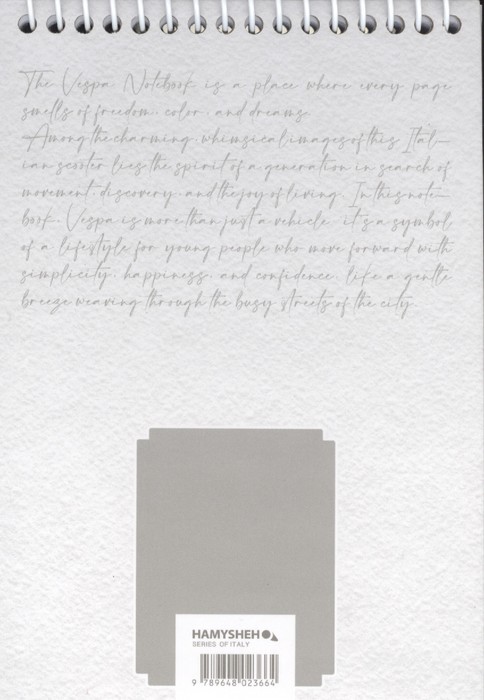 The Vespa Notebook is a place where every page
smells of freedom, color, and dreams.
Among the charming, whimsical images of this Ital-
ian scooter lies the spirit of a generation in search of
movement, discovery, and the joy of living. In this note-
book, Vespa is more than just a vehicle, it's a symbol
of a lifestyle for young people who move forward with
simplicity, happiness, and confidence, like a gentle
breeze weaving through the busy streets of the city.
HAMYSHEH
SERIES OF ITALY
9 789648 023664